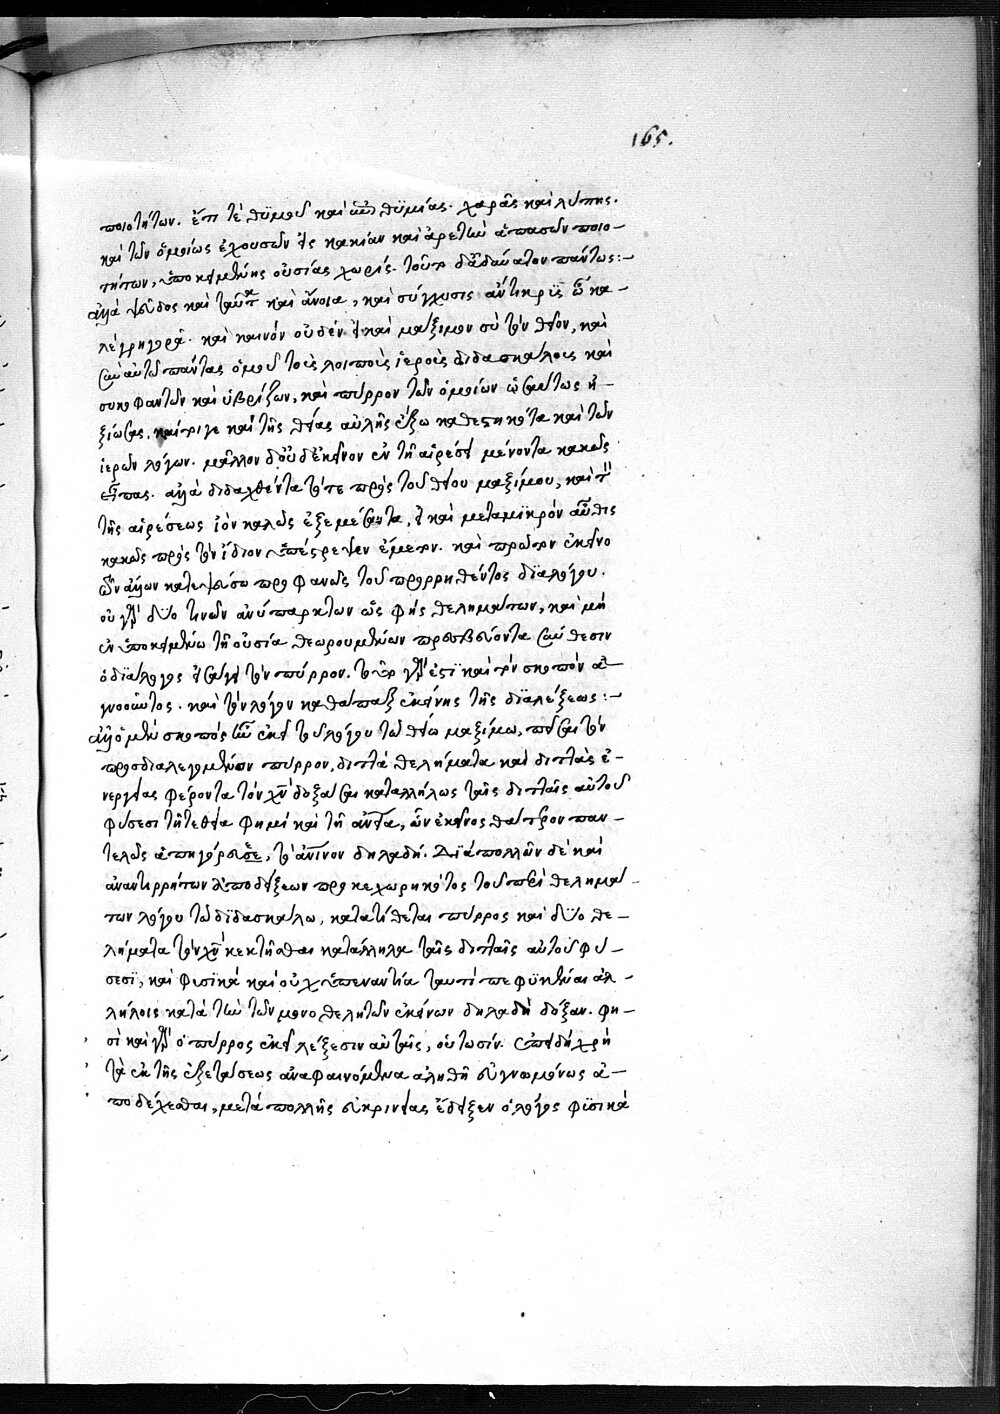 165.
ποιοτήτων. ἔτι τὲ θυμοῦ καὶ ἐπιθυμίας. χαρᾶς καὶ λύπης.
καὶ τῶν ὁμοίως ἐχουσῶν εἰς κακίαν καὶ ἀρετὴν ἁπασῶν ποιο-
τήτων, ὑποκειμένης οὐσίας χωρίς. τοῦτο δ' ἀδύνατον πάντως:-
ἀλλὰ ψεῦδος καὶ ταῦτα καὶ ἄνοια, καὶ σύγχυσις ἄντικρυς ὦ κα-
λὲ γρηγορᾶ. καὶ καινὸν οὐδὲν εἰ καὶ μάξιμον σὺ τὸν θεῖον, καὶ
σὺν αὐτῷ πάντας ὁμοῦ τοὺς λοιποὺς ἱεροὺς διδασκάλους καὶ
συκοφαντῶν καὶ ὑβρίζων, καὶ πύρρον τῶν ὁμοίων ὡσαύτως ἠ-
ξίωσας. καίτοι γε καὶ τῆς θείας αὐλῆς ἔξω καθεστηκότα καὶ τῶν
ἱερῶν λόγων. μᾶλλον δ' οὐδ' ἐκεῖνον ἐν τῇ αἱρέσει μένοντα κακῶς
εἶπας. ἀλλὰ διδαχθέντα τότε πρὸς τοῦ θείου μαξίμου, καὶ τὸν
τῆς αἱρέσεως ἰὸν καλῶς ἐξεμέσαντα, εἰ καὶ μεταμικρὸν αὖθις
κακῶς πρὸς τὸν ἴδιον ὑπέστρεψεν ἔμετον. καὶ πρῶτον ἐκεῖνο
ὧν ἄλλων κατεψεύσω προφανῶς τοῦ προρρηθέντος διαλόγου.
οὐ γὰρ δύο τινῶν ἀνυπάρκτων ὡς φῂς θελημάτων, καὶ μὴ
ἐν ὑποκειμένῳ τῇ οὐσίᾳ θεωρουμένων πρεσβεύοντα σύνθεσιν
ὁ διάλογος εἰσάγει τὸν πύρρον. τοῦτο γὰρ ἐστὶ καὶ τὸν σκοπὸν ἀ-
γνοοῦντος. καὶ τὸν λόγον καθάπαξ ἐκείνης τῆς διαλέξεως:-
ἀλλ' ὁ μὲν σκοπὸς ἦν ἐκεῖ τοῦ λόγου τῷ θείῳ μαξίμῳ, πεῖσαι τὸν
προσδιαλεγόμενον πύρρον, διττὰ θελήματα καὶ διττὰς ἐ-
νεργείας φέροντα τὸν χν δοξάσαι καταλλήλως ταῖς διτταῖς αὐτοῦ
φύσεσι τῇ τε θεία φημὶ καὶ τῇ ἀνεία, ὧν ἐκεῖνος θάτερον παν-
τελῶς ἀπηγόρευσε, τὸ ἀνινον δηλαδή. Διὰ πολλῶν δὲ καὶ
ἀναντιρρήτων ἀποδείξεων προκεχωρηκότος τοῦ περὶ θελημά-
των λόγου τῷ διδασκάλῳ, κατατίθεται πύρρος καὶ δύο θε-
λήματα τὸν χν κεκτῆσθαι κατάλληλα ταῖς διτταῖς αὐτοῦ φύ-
σεσι, καὶ φυσικὰ καὶ οὐχ ὑπεναντία ταυτὶ πεφυκέναι ἀλ-
λήλοις κατὰ τὴν τῶν μονοθελητῶν ἐκείνων δηλαδὴ δόξαν. φη-
σὶ καὶ γὰρ ὁ πύρρος ἐκεῖ λέξεσιν αὐταῖς, οὑτωσίν. Ἐπειδὴ χρὴ
τὰ ἐκ τῆς ἐξετάσεως ἀναφαινόμενα ἀληθῆ εὐγνωμόνως ἀ-
ποδέχεσθαι, μετὰ πολλῆς εὐκρινείας ἔδειξεν ὁ λόγος φυσικὰ